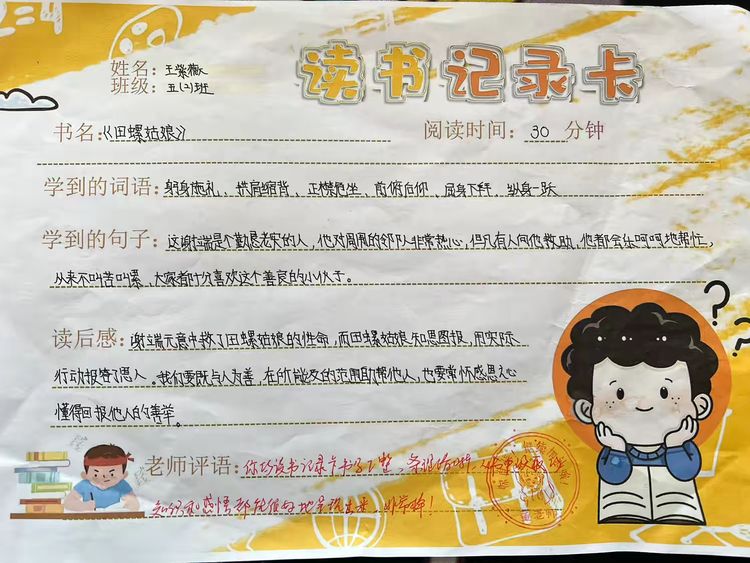 读书记录卡
姓名：王紫薇
班级：五(二)班
书名：《田螺姑娘》 阅读时间：30 分钟
学到的词语：躬身施礼、拱肩缩背、正襟危坐、前俯后仰、屈身下拜、纵身一跃
学到的句子：这谢端是个勤恳老实的人，他对周围的邻队非常热心，但凡有人向他救助，他都会乐呵呵地帮忙，
从来不叫苦叫累，大家都十分喜欢这个善良的小伙子。
读后感：谢端无意中救了田螺姑娘的性命，而田螺姑娘知恩图报，用实际
行动报答了恩人。我们要既与人为善，在所能及的范围助帮他人，也要常怀感恩之心
懂得回报他人的善举。
老师评语：你的读书记录卡书写工整，条理清晰，
知识和感悟都能很好地呈现出来，非常棒！